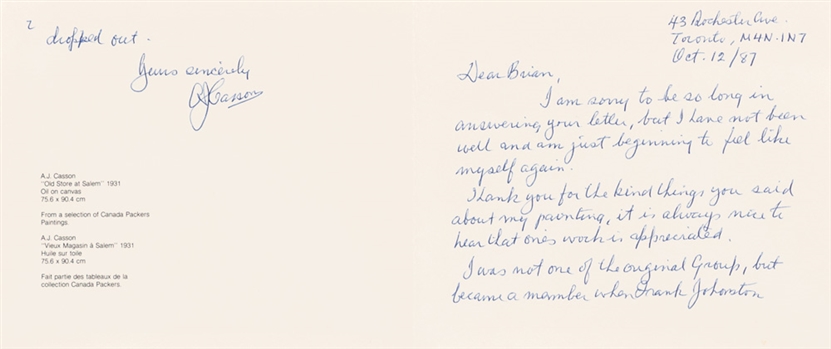 43 Rochester Ave.
Toronto, M4N-1N7
Oct. 12/87
Dear Brian,
I am sorry to be so long in
answering your letter, but I have not been
well and am just beginning to feel like
myself again.
Thank you for the kind things you said
about my painting, it is always nice to
hear that one's work is appreciated.
I was not one of the original Group, but
became a member when Frank Johnston
2
dropped out.
Yours sincerely
AJ Casson
A.J. Casson
"Old Store at Salem" 1931
Oil on canvas
75.6 x 90.4 cm
From a selection of Canada Packers
Paintings.
A.J. Casson
"Vieux Magasin à Salem" 1931
Huile sur toile
75.6 x 90.4 cm
Fait partie des tableaux de la
collection Canada Packers.